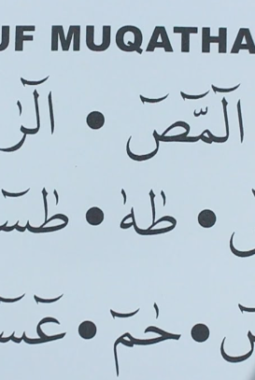 UF MUQATHA
الٓمّٓصٓ • الٓرٰ
• طٰهٰ • طٰسٓ
• حٰمٓ • عٓسٓ